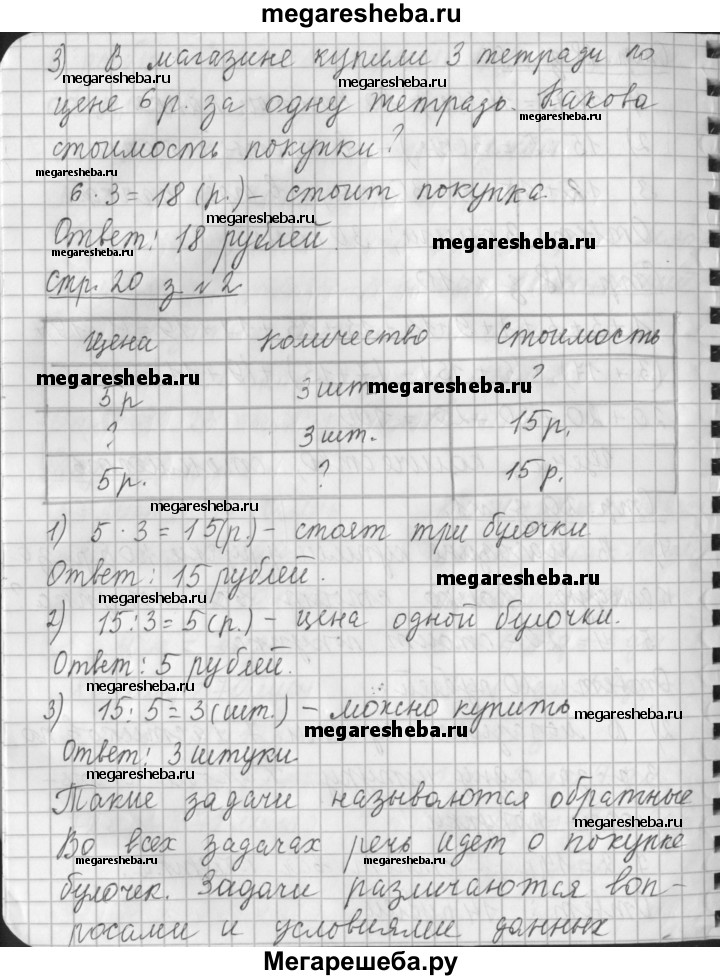 megaresheba.ru
3) В магазине купили 3 тетради по
megaresheba.ru megaresheba.ru
цене 6 р. за одну тетрадь. Какова
megaresheba.ru megaresheba.ru
стоимость покупки?
megaresheba.ru
6 · 3 = 18 (р.) – стоит покупка.
megaresheba.ru
Ответ: 18 рублей.
megaresheba.ru megaresheba.ru
Стр. 20 з №2
Цена количество Стоимость
megaresheba.ru megaresheba.ru
5 р 3 шт. ?
? 3 шт. 15 р.
5 р. ? 15 р.
megaresheba.ru
1) 5 · 3 = 15 (р.) – стоят три булочки.
Ответ: 15 рублей. megaresheba.ru
megaresheba.ru
2) 15 : 3 = 5 (р.) – цена одной булочки.
Ответ: 5 рублей.
megaresheba.ru
3) 15 : 5 = 3 (шт.) – можно купить
megaresheba.ru megaresheba.ru
Ответ: 3 штуки
megaresheba.ru
Такие задачи называются обратные
megaresheba.ru
Во всех задачах речь идет о покупке
megaresheba.ru megaresheba.ru
булочек. Задачи различаются воп-
megaresheba.ru
росами и условиями данных
megaresheba.ru
Мегарешеба.ру